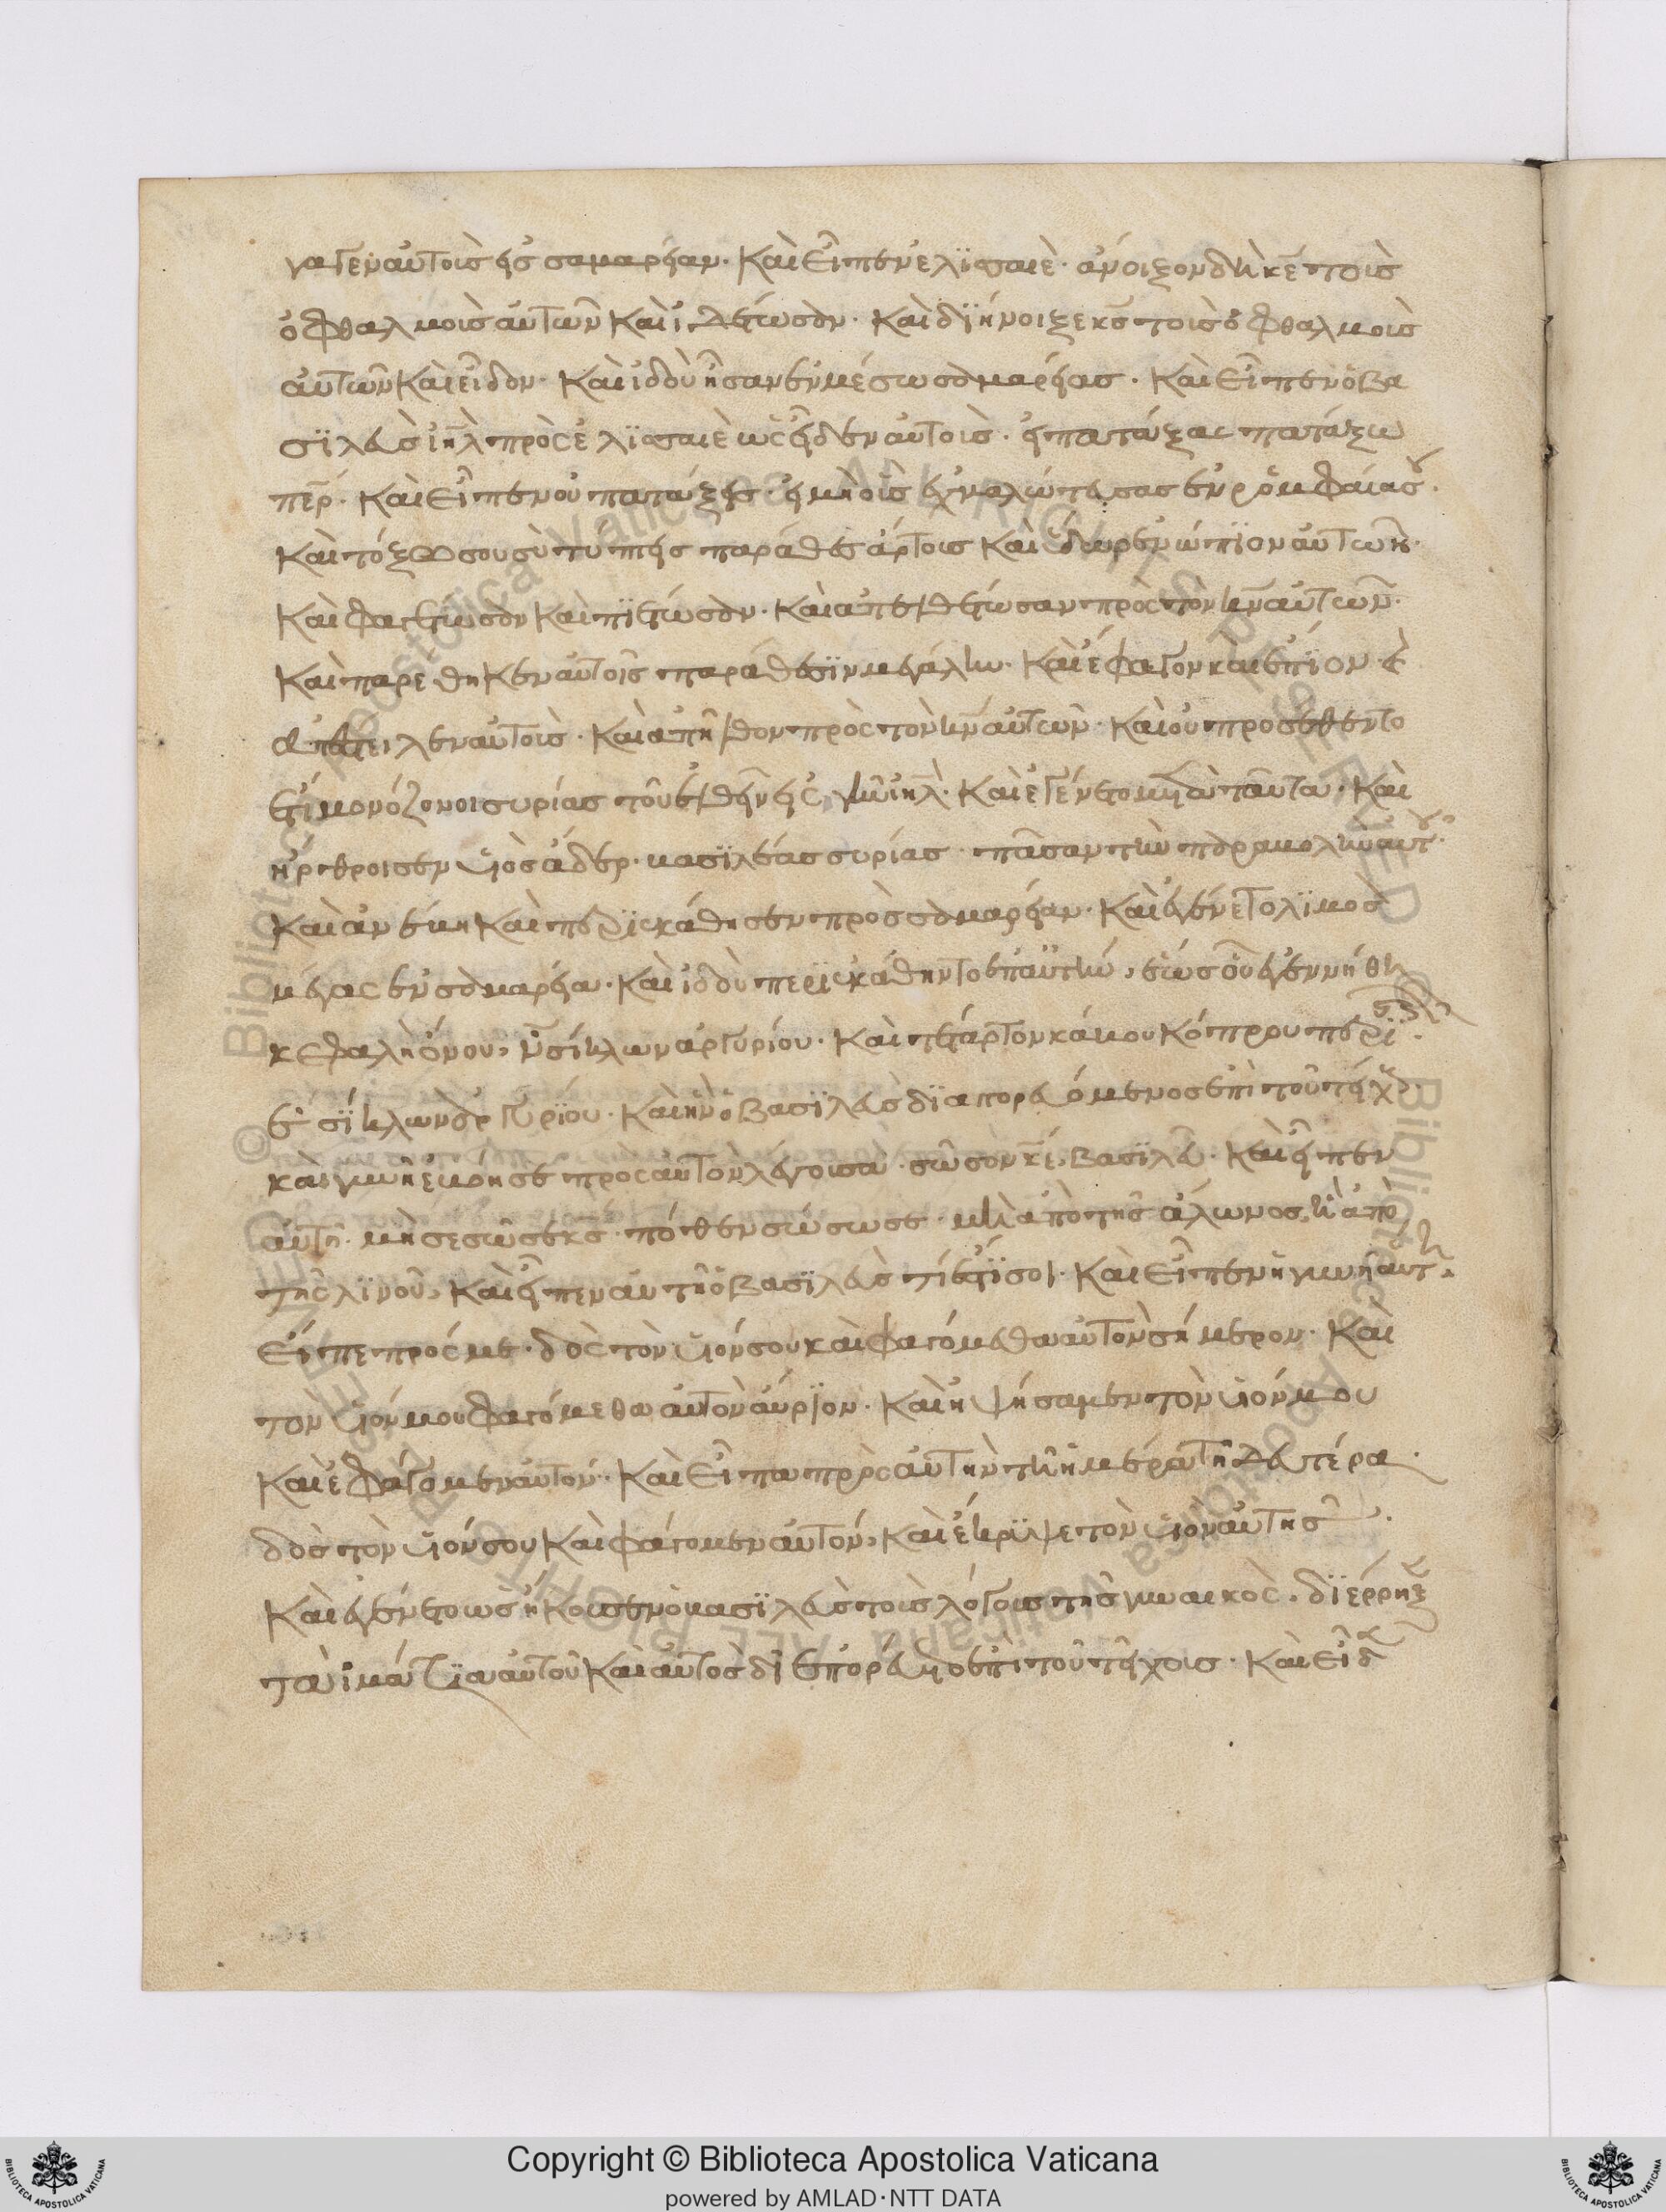 γαγεν αὐτοὺς εἰς σαμαρείαν. Καὶ εἶπεν ἐλϊσσαιὲ. ἄνοιξον δὴ κε̅ τοὺς
ὀφθαλμοὺς αὐτῶν καὶ ἰδέτωσαν. Καὶ δϊήνοιξε κς̅ τοὺς ὀφθαλμοὺς
αὐτῶν καὶ εἶδον. Καὶ ἰδοὺ ἦσαν ἐν μέσω σαμαρείας. Καὶ εἶπεν ὁ βα
σϊλεὺς ιη̅λ πρὸς ἐλϊσσαιὲ ὡς εἶδεν αὐτοὺς. εἰ πατάξας πατάξω
περ̅. Καὶ εἶπεν οὐ πατάξεις. εἰ μὴ οὓς ἠχμαλώτευσας ἐν ῥομφαία σου.
Καὶ τόξω σου σὺ τύπτεις παράθες ἄρτους καὶ ὕδωρ ἐνώπϊον αὐτῶν.
Καὶ φαγέτωσαν καὶ πϊέτωσαν. Καὶ ἀπελθέτωσαν πρὸς τὸν κν̅ αὐτῶν.
Καὶ παρέθηκεν αὐτοῖς παράθεσϊν μεγάλην. Καὶ ἔφαγον καὶ ἔπϊον. καὶ
ἀπέστειλεν αὐτοὺς. Καὶ ἀπῆλθον πρὸς τὸν κν̅ αὐτῶν. Καὶ οὐ προσέθεντο
ἔτι μονόζωνοι συρίας τοῦ ἐλθεῖν εἰς γῆν ιη̅λ. Καὶ ἐγένετο μετὰ ταῦτα. Καὶ
ἤθροισεν υἱὸς ἄδερ. βασϊλεὺς συρίας. πᾶσαν τὴν παρεμβολὴν αὐτοῦ.
Καὶ ἀνέβη καὶ περϊεκάθησεν πρὸς σαμαρείαν. Καὶ ἐγένετο λϊμὸς
μέγας ἐν σαμαρεία. Καὶ ἰδοὺ περϊεκάθηντο ἐπ αὐτὴν, ἕως οὗ ἐγεννήθη
κεφαλὴ ὄνου, ν̅ σίκλων ἀργυρίου. Καὶ τέταρτον κάβου κόπρου περϊστερῶν
ε̅ σϊκλων ἀργυρϊου. Καὶ ἦν ὁ βασϊλεὺς δϊαπορευόμενος ἐπὶ τοῦ τείχους
καὶ γυνὴ ἐβόησε πρὸς αὐτὸν λέγουσα. σῶσον κε̅, βασϊλεῦ. Καὶ εἶπεν
αὐτῆ. μὴ σε σῶσε κς̅. πόθεν σώσω σε. μὴ ἀπὸ τῆς ἅλωνος, ἢ ἀπὸ
τῆς ληνοῦ, καὶ εἶπεν αὐτῆ ὁ βασϊλεὺς τί ἐστϊ σοι. Καὶ εἶπεν ἡ γυνὴ αὕτη.
εἶπε πρός με. δὸς τὸν υἱόν σου καὶ φαγόμεθα αὐτὸν σήμερον. Καὶ
τὸν υἱόν μου φαγόμεθα αὐτὸν αὔρϊον. Καὶ ἡψήσαμεν τὸν υἱόν μου
καὶ ἐφάγομεν αὐτόν. Καὶ εἶπα πρὸς αὐτὴν τῆ ἡμέρα τῆ δευτέρα.
δὸς τὸν υἱόν σου καὶ φάγομεν αὐτόν, καὶ ἔκρυψε τὸν υἱὸν αὐτῆς.
Καὶ ἐγένετο ὡς ἤκουσεν ὁ βασϊλεὺς τοὺς λόγους τῆς γυναικὸς. δϊέρρηξε
τὰ ἱμάτϊα αὐτοῦ καὶ αὐτὸς δϊεπορεύετο ἐπὶ τοῦ τείχους. Καὶ εἶδεν
Copyright © Biblioteca Apostolica Vaticana
powered by AMLAD·NTT DATA